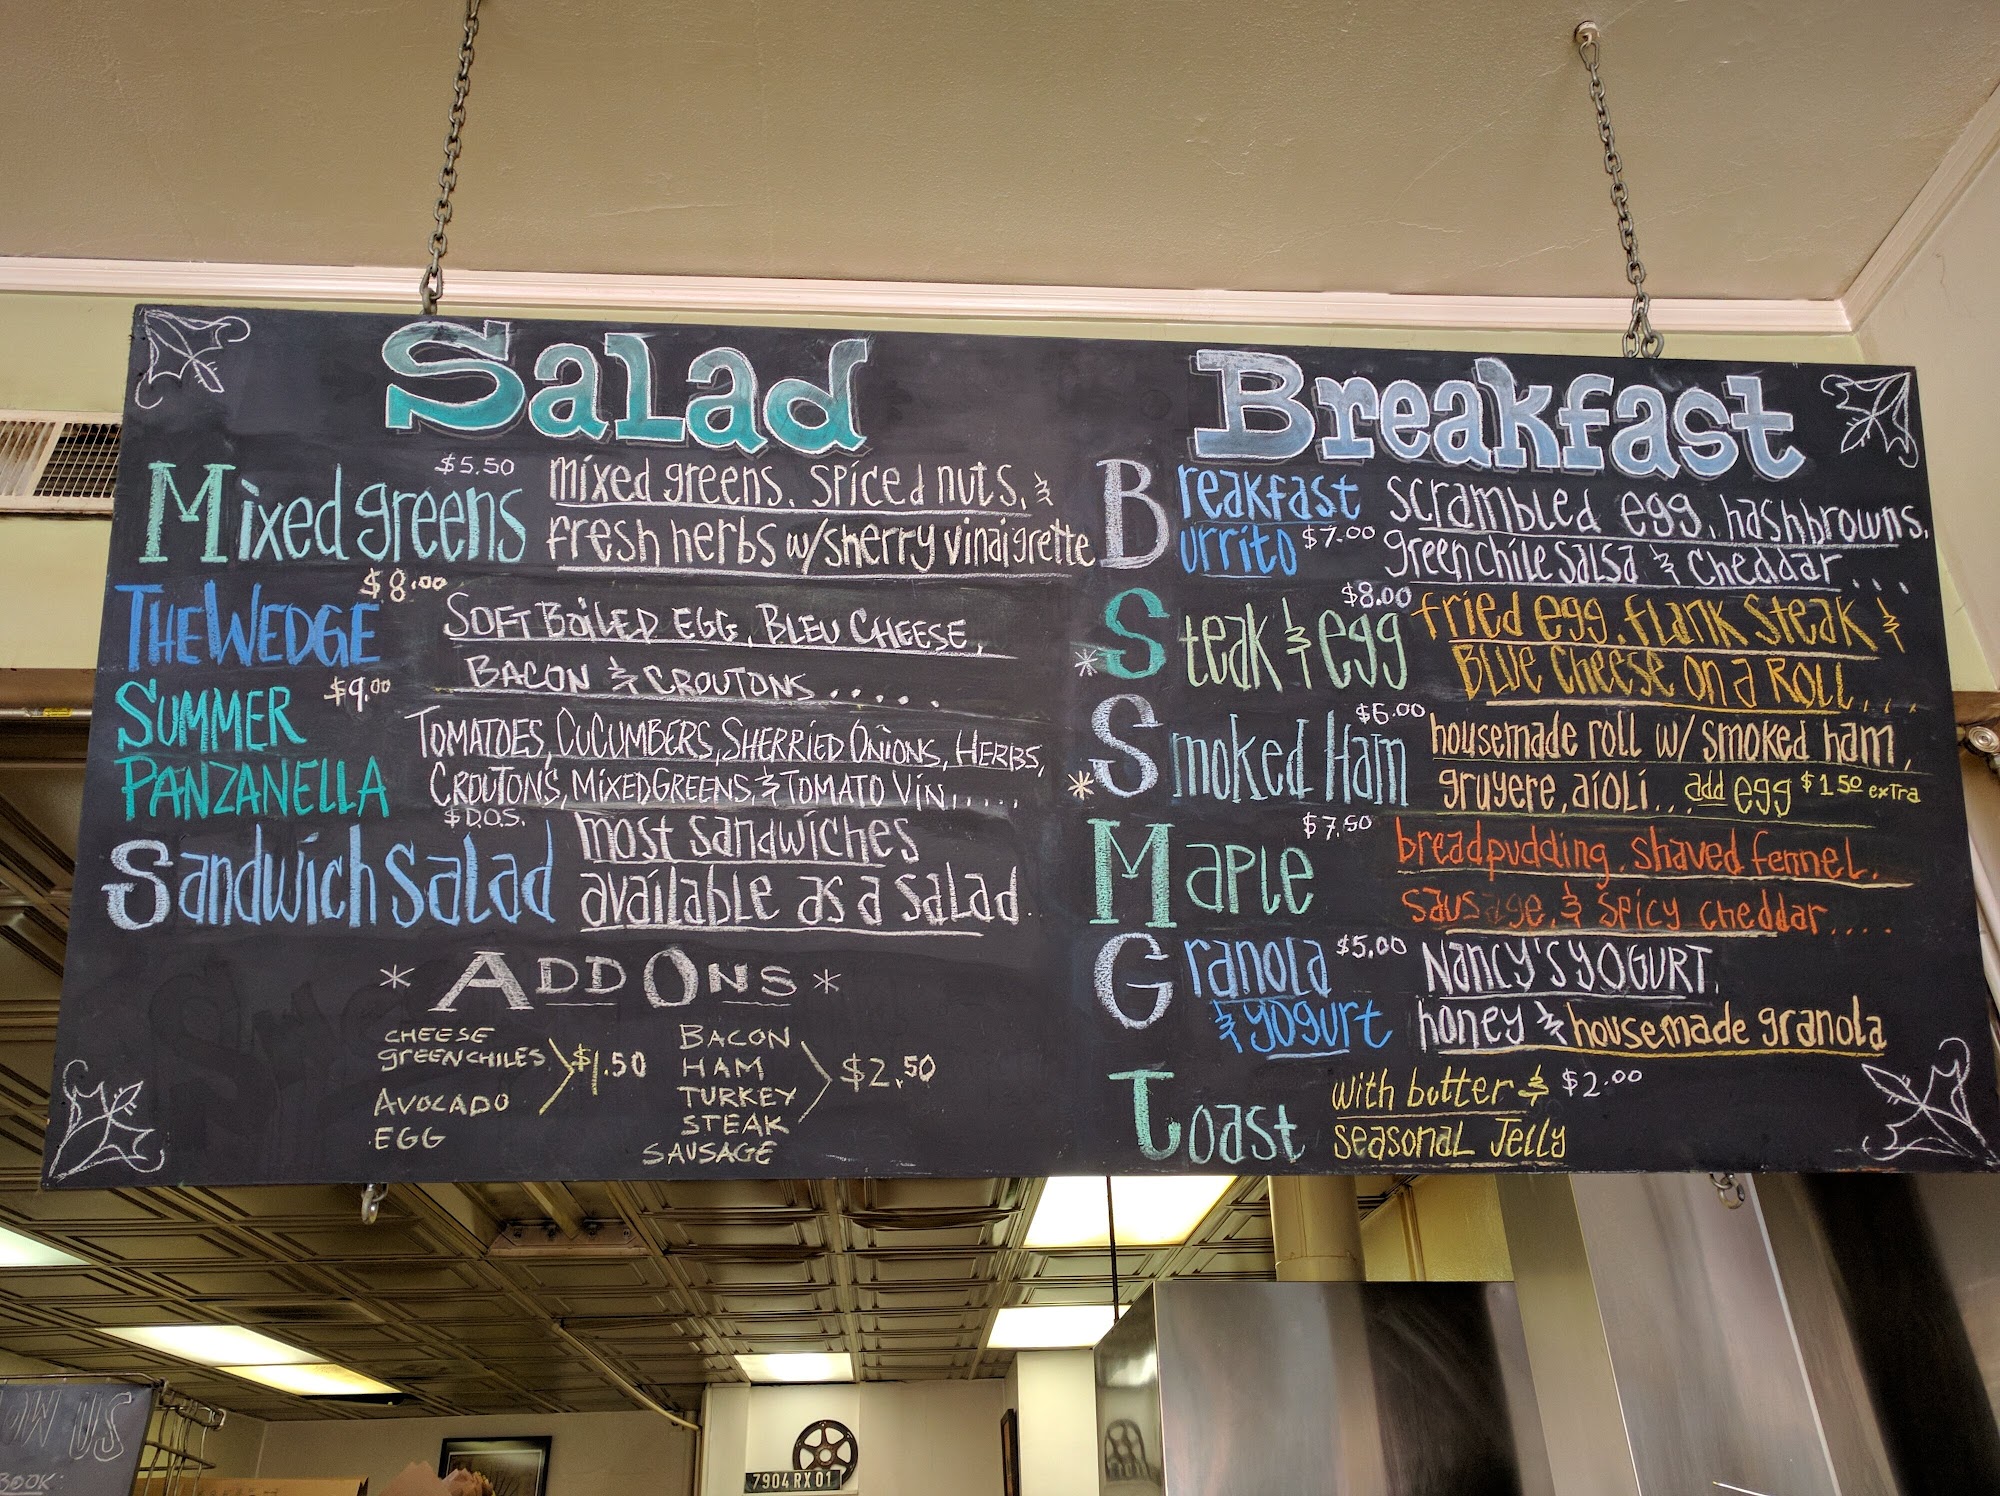 Salad
$5.50
Mixed greens
mixed greens, spiced nuts, &
fresh herbs w/sherry vinaigrette
$8.00
THE WEDGE
SOFT BOILED EGG, BLEU CHEESE,
BACON & CROUTONS......
SUMMER $9.00
PANZANELLA
TOMATOES, CUCUMBERS, SHERRIED ONIONS, HERBS,
CROUTONS, MIXED GREENS, & TOMATO VIN.....
$D.O.S.
Sandwich Salad
most sandwiches
available as a salad.
* ADD ONS *
CHEESE
GREEN CHILES
AVOCADO
EGG
$1.50
BACON
HAM
TURKEY
STEAK
SAUSAGE
$2.50
Breakfast
Breakfast
Burrito $7.00
scrambled egg, hashbrowns,
green chile salsa & cheddar....
$8.00
* Steak & egg
fried egg, flank steak &
Blue cheese on a Roll...
$6.00
* Smoked Ham
housemade roll w/ smoked ham,
gruyere, aioli... add egg $1.50 extra
$7.50
Maple
bread pudding, shaved fennel,
sausage, & spicy cheddar....
Granola $5.00
& yogurt
NANCY'S YOGURT,
honey & housemade granola
Toast
with butter & $2.00
seasonal Jelly
OW US
BOOK:
7904 RX 01